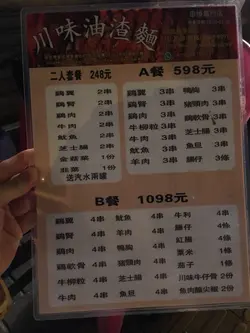 川味油渣麵
二人套餐 248元
鷄翼 2串
鷄臂 2串
鷄肉 2串
牛肉 2串
魷魚 2串
芝士腸 2串
金菇菜 1份
韭菜 1份
送汽水兩罐
A餐 598元
鷄翼 3串 鴨胸 3串
鷄臂 3串 豬頸肉 3串
鷄肉 3串 鷄軟骨 3串
牛柳粒 3串 芝士腸 3串
魷魚 3串 魚旦 3串
羊肉 3串
B餐 1098元
鷄翼 4串 魷魚 4串 牛利 4串
鷄臂 4串 羊肉 4串
鷄肉 4串 鴨胸 4串 紅腸
鷄軟骨 4串 豬頸肉 4串 粟米
牛柳粒 4串 芝士腸 4串 茄子
牛肉 4串 魚旦 4串 川味牛仔骨 2份
魚肉釀尖椒 2份